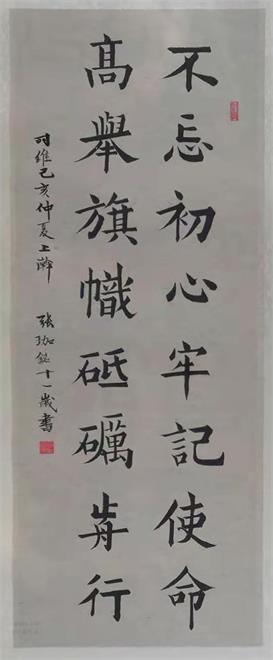 不忘初心牢記使命
高舉旗幟砥礪歬行
时維己亥仲夏上澣
張珈銘十一歲書